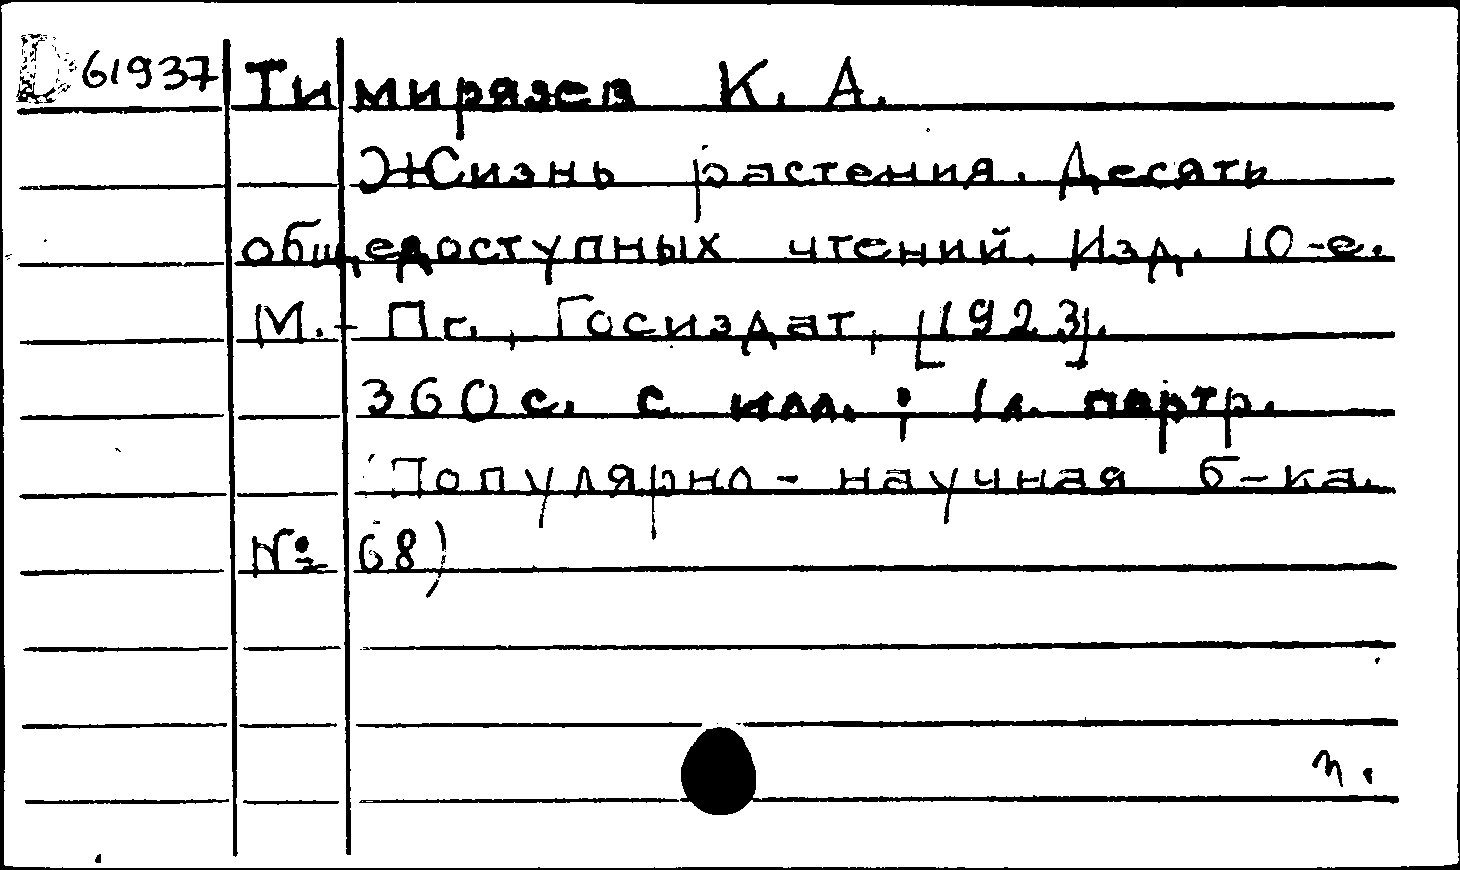 D 61937 Тимирязев К. А.
Жизнь растения. Десять
общедоступных чтений. Изд. 10-е.
М.-Пг., Госиздат, [1923].
360 с. с илл.; 1 л. портр.
Популярно-научная б-ка.
№ 68)
п.